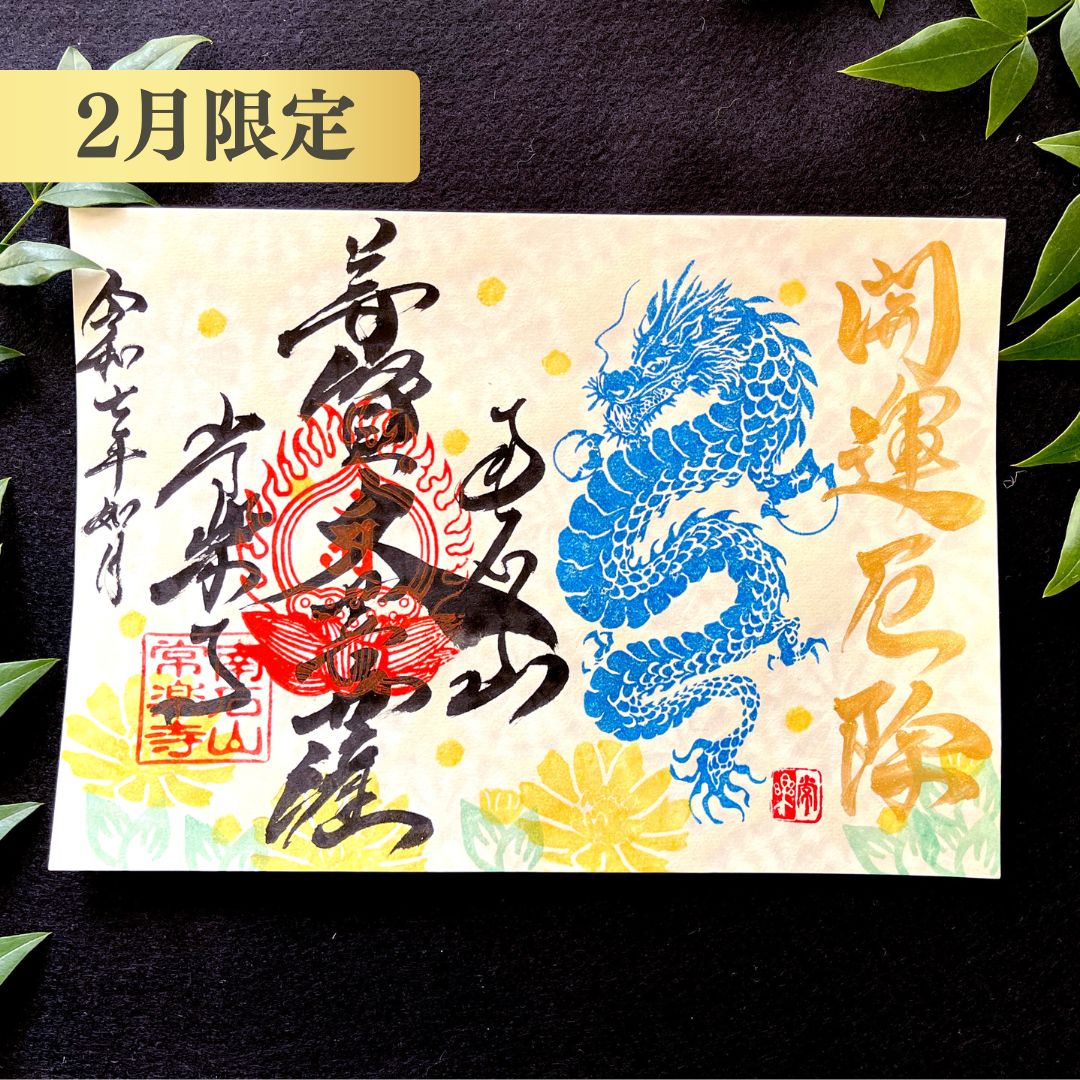 2月限定
開運厄除
常楽
南光山
普賢大菩薩
常楽寺
南光山
常楽寺
令和七年如月